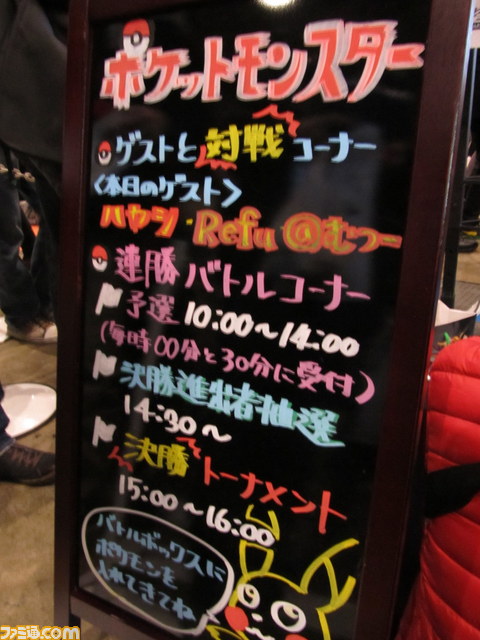 ポケットモンスター
ゲストと対戦コーナー
<本日のゲスト>
ハヤシ・Refu@むつー
連勝バトルコーナー
予選 10:00～14:00
(毎時00分と30分に受付)
決勝進出者抽選
14:30～
決勝トーナメント
15:00～16:00
バトルボックスに
ポケモンを
入れてきてね
ファミ通.com